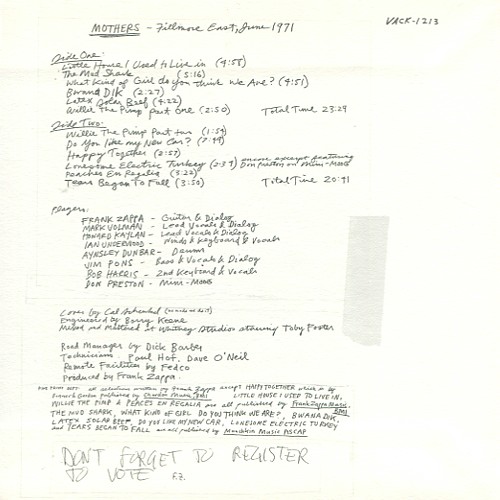 MOTHERS - Fillmore East, June 1971
VACK-1213
Side One:
Little House I Used to Live in (4:58)
The Mud Shark (5:16)
What Kind of Girl do you think We Are? (4:51)
Bwana Dik (2:27)
Latex Solar Beef (4:22)
Willie The Pimp Part One (2:50) Total Time 23:29
Side Two:
Willie The Pimp Part two (1:54)
Do You like my New Car? (7:49)
Happy Together (2:57)
Lonesome Electric Turkey (2:39) encore except featuring Don Preston on Mini-Moog
Peaches En Regalia (3:22)
Tears Began To Fall (3:50) Total Time 20:41
Players:
FRANK ZAPPA - Guitar & Dialog
MARK VOLMAN - Lead Vocals & Dialog
HOWARD KAYLAN - Lead Vocals & Dialog
IAN UNDERWOOD - Winds & Keyboard & Vocals
AYNSLEY DUNBAR - Drums
JIM PONS - Bass & Vocals & Dialog
BOB HARRIS - 2nd Keyboard & Vocals
DON PRESTON - Mini-Moog
Cover by Cal Schenkel
Engineered by Barry Keene
Mixed and Mastered at Whitney Studios starring Toby Foster
Road Manager by Dick Barber
Technicians: Paul Hof, Dave O'Neil
Remote Facilities by Fedco
Produced by Frank Zappa
all selections written by Frank Zappa except HAPPY TOGETHER which is by
published by BMI LITTLE HOUSE I USED TO LIVE IN,
WILLIE THE PIMP & PEACES EN REGALIA are all published by Frank Zappa Music BMI
THE MUD SHARK, WHAT KIND OF GIRL DO YOU THINK WE ARE?, BWANA DIK,
LATEX SOLAR BEEF, DO YOU LIKE MY NEW CAR, LONESOME ELECTRIC TURKEY,
and TEARS BEGAN TO FALL are all published by Munchkin Music ASCAP
DON'T FORGET TO REGISTER
TO VOTE F.Z.